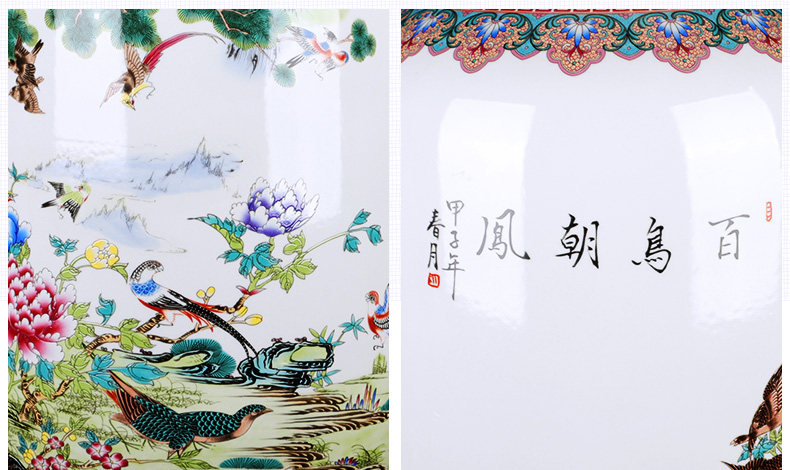 百鳥朝鳳
甲子年
春月